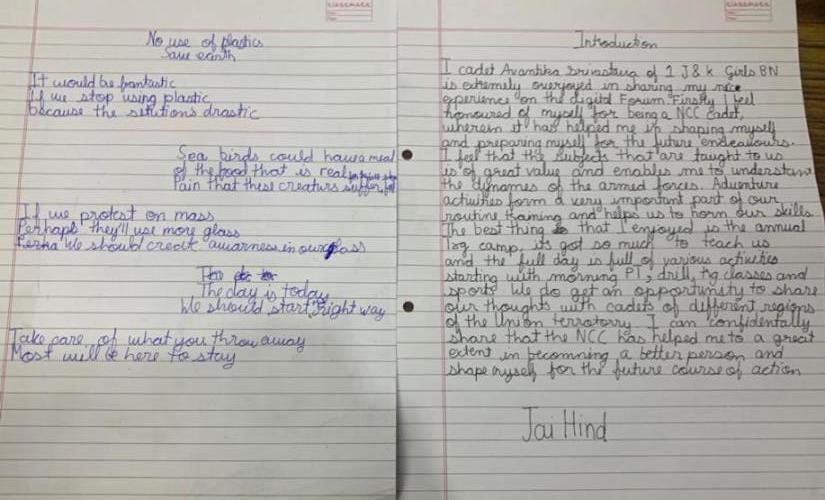 classmate
No use of plastics
Save earth
It would be frantastic
If we stop using plastic
because the sitution's drastic
Sea birds could have a meal
of the food that is real
Pain that these creaturs suffer
If we protest on mass
Perhaps they'll use more glass
Perha We should credt awarness in our glass
The day is today
We should start right way
Take care of what you throw away
Most will be here to stay
classmate
Introduction
I cadet Avantika Srivastava of 1 J & K Girls BN
is extremely overjoyed in sharing my nice
experience on the digital Forum. Firstly I feel
honoured of myself for being a NCC Cadet,
wherein it has helped me in shaping myself
and preparing myself for the future endeavours.
I feel that the subjects that are taught to us
is of great value and enables me to understand
the dynomes of the armed forces. Adventure
activities form a very important part of our
routine training and helps us to horn our skills.
The best thing that I enjoyed is the annual
Trg camp, its got so much to teach us
and the full day is full of various activities
starting with morning PT, drill, trg classes and
sports We do get an opportunity to share
our thoughts with cadets of different regions
of the Union terrotorry. I can confidentally
share that the NCC has helped me to a great
extent in becomning a better person and
shape myself for the future course of action
Jai Hind